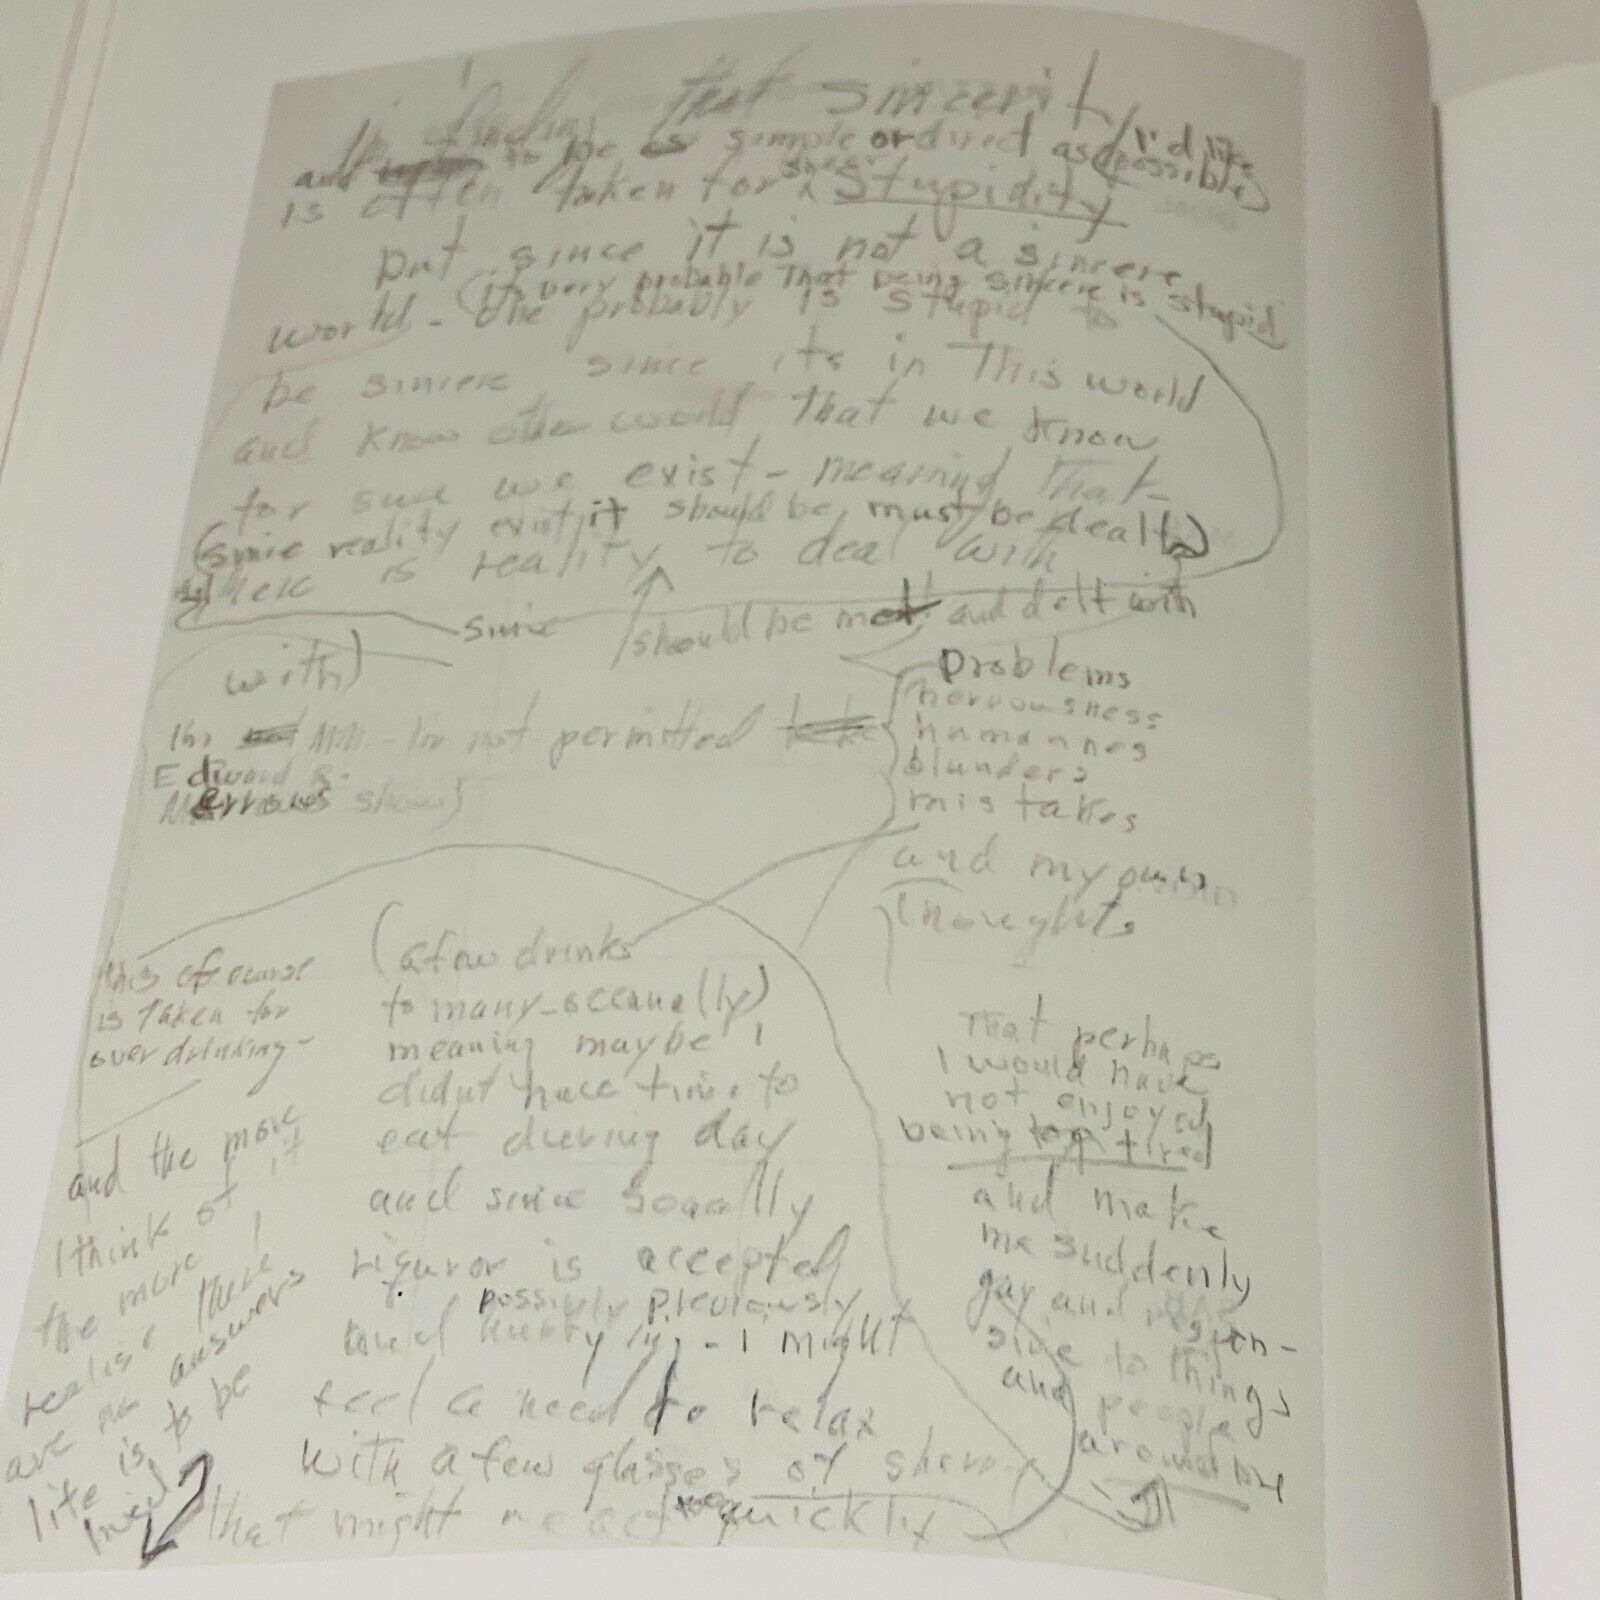 I'm finding that sincerity
and to be as simple or direct as (possible) I'd like
is often taken for sheer stupidity
but since it is not a sincere
world - (it's very probable that being sincere is stupid
One probably is stupid to
be sincere since its in this world
and know other world that we know
for sure we exist - meaning that -
(since reality exist, it should be, must be dealt)
there is reality to deal with
since should be met and delt with
with)
Im not MM. - Im not permitted
problems
nervousness
humannes
blunders
mistakes
and my own
thoughts
Edward R.
Murrows show)
this of course
is taken for
over drinking -
and the more
I think of it
the more I
realise there
are no answers
life is to be
lived
(a few drinks
to many_occanally)
meaning maybe I
didnt have time to
eat during day
and since socally
liquror is accepted
possibly previously
and - I might
feel a need to relax
with a few glasses of sherry
that might react quickly
2
That perhaps
I would have
not enjoyed
being too tired
and make
me suddenly
gay and respon-
sive to things
and people
around me